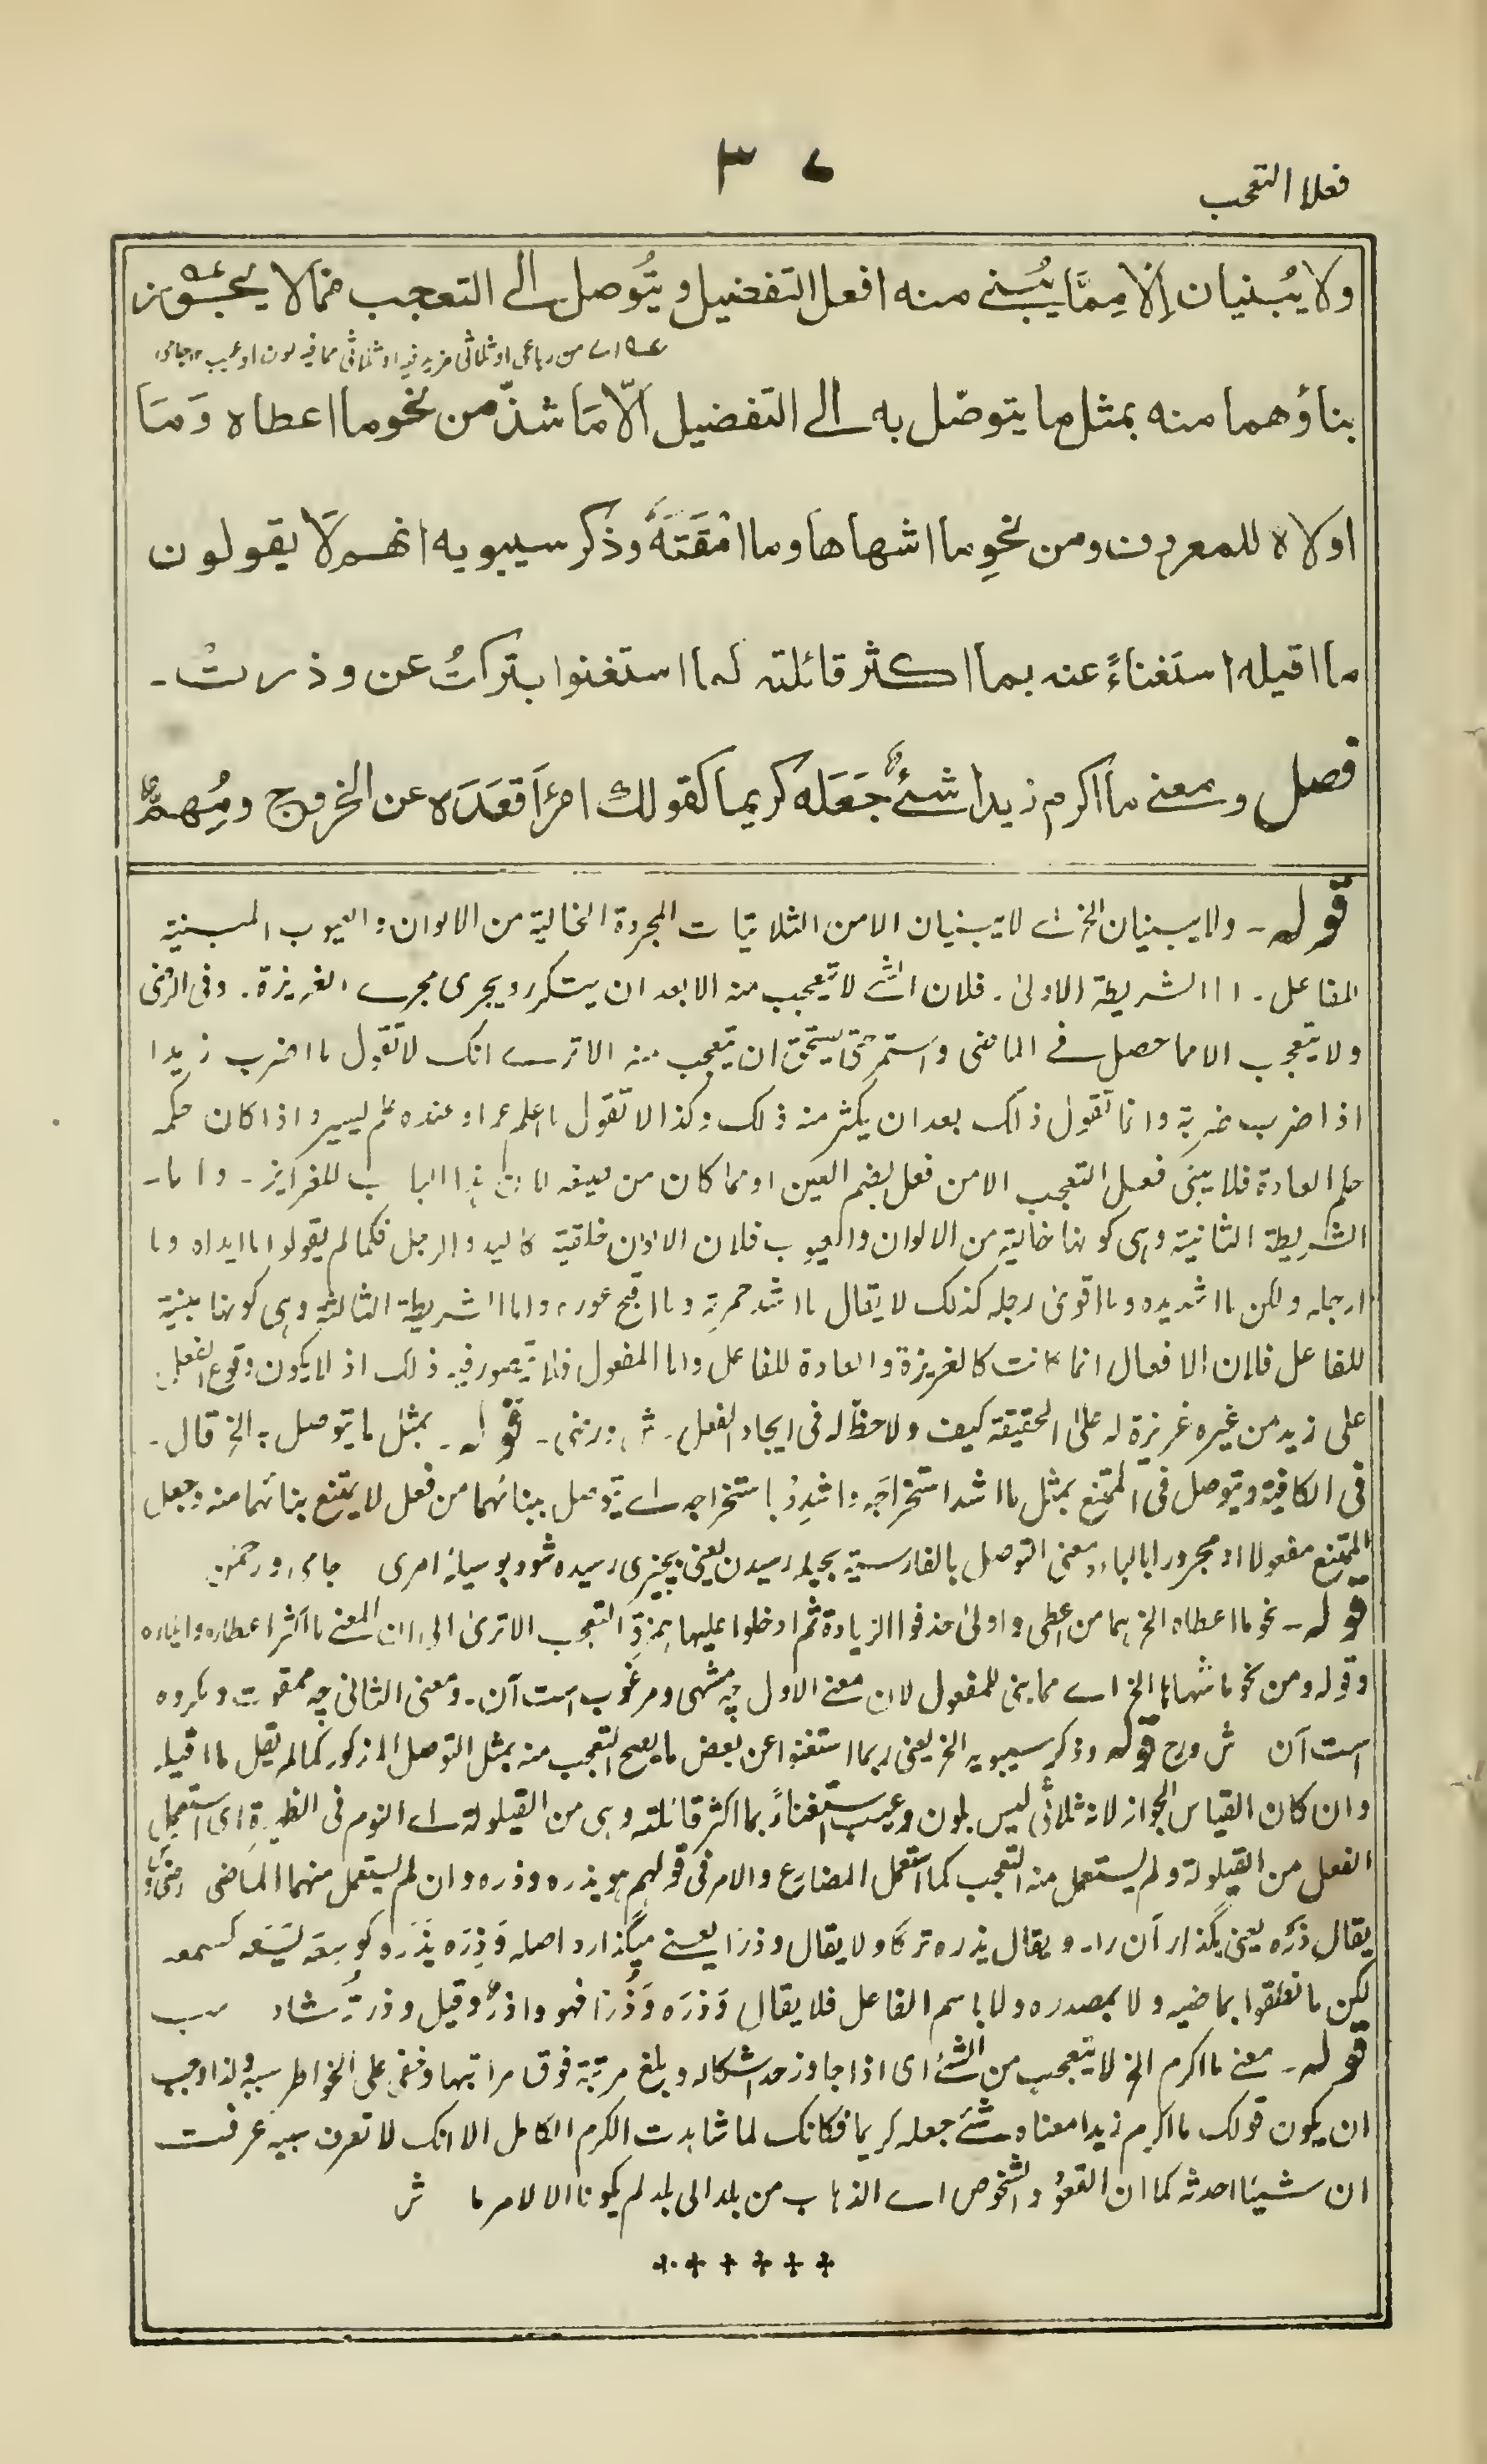 فعلا التعجب
ولا يُبنيان إلا مِمَّا يُبنى منه افعل التفضيل ويُتوصل الى التعجب مما لا يجوز
عه اے من رباعى او ثلاثى مزيد فيه او ثلاثى مما فيه لون او عيب ١٢ جامى
بناؤهما منه بمثل ما يتوصّل به الى التفضيل الّا مَا شذّ من نحو ما اعطاه وَمَا
اولاه للمعروف ومن نحوِ ما اشهاها وما امْقَتَهٗ وذكر سيبويه انهم لَا يقولون
ما اقيله استغناءً عنه بما اكثر قائلته كما استغنوا بتركتُ عن وذرتُ۔
فصل ومعنى ما اكرم زيدا شئٌ جَعَلَه كريما كقولك امرٌ اَقعَدَه عن الخروج ومُهِمٌّ
قوله۔ ولا يبنيان الخ اے لا يبنيان الا من الثلاثيات المجردة الخالية من الالوان والعيوب المبنية
للفاعل۔ اما الشريطة الاولى۔ فلان الشئ لا يتعجب منه الا بعد ان يتكرر ويجرى مجرى الغريزة۔ وفى الرضى
ولا يتعجب الا مما حصل فى الماضى واستمر حتى يستحق ان يتعجب منه الا ترى انك لا تقول ما اضرب زيدا
اذا ضرب ضربة وانما تقول ذلك بعد ان يكثر منه ذلك وكذا لا تقول ما اعلم عمرا وعنده علم يسير واذا كان حكمه
حكم العادة فلا يبنى فعل التعجب الا من فعل بضم العين او مما كان من صيغه لان هذا الباب للغرايز۔ واما۔
الشريطة الثانية وهى كونها خالية من الالوان والعيوب فلان الالوان خلقية كاليد والرجل فكما لم يقولوا ما ايداه وما
ارجله ولكن ما اشد يده وما اقوى رجله كذلك لا يقال ما اشد حمرته وما اقبح عوره واما الشريطة الثالثة وهى كونها مبنية
للفاعل فلان الافعال انما كانت كالغريزة والعادة للفاعل واما المفعول فلا يتصور فيه ذلك اذ لا يكون وقوع الفعل
على زيد من غيره غريزة له على الحقيقة كيف ولا حظ له فى ايجاد الفعل۔ ش ورضى۔ قوله۔ بمثل ما يتوصل به الخ قال۔
فى الكافية ويتوصل فى الممتنع بمثل ما اشد استخراجَه واشدِدْ باستخراجه اے يتوصل ببنائهما من فعل لا يمتنع بنائهما منه وجعل
الممتنع مفعولا او مجرورا بالباء ومعنى التوصل بالفارسية بحيله رسيدن يعنى بچيزى رسيده شود بوسيلهٔ امرى جامى ورضى
قوله۔ نحو ما اعطاه الخ هما من اعطى واولى حذفوا الزيادة ثم ادخلوا عليها همزة التعجب الا ترى الى ان المعنى ما اكثر اعطاءه وايلاءه
وقوله ومن نحو ما اشهاها الخ اے مما بنى للمفعول لان معنى الاول چه مشتهى ومرغوب است آن۔ ومعنى الثانى چه ممقوت ومكروه
است آن ش ورح قوله وذكر سيبويه الخ يعنى ربما استغنوا عن بعض ما يصح التعجب منه بمثل التوصل المذكور كما لم تقل ما اقيله
وان كان القياس الجواز لانه ثلاثى ليس بلون وعيب استغناءً بما اكثر قائلته وهى من القيلولة اے النوم فى الظهيرة اى استعمل
الفعل من القيلولة ولم يستعمل منه التعجب كما استعمل المضارع والامر فى قولهم هو يذره وذره وان لم يستعمل منهما الماضى
يقال ذَرْه يعنى بگذار آن را۔ ويقال يذره تركا ولا يقال وذرا يعنى ميگذارد اصله وَذِرَه يَذَرَه كوسِعَه يَسَعَه كسمعه
لكن ما نطقوا بماضيه ولا بمصدره ولا باسم الفاعل فلا يقال وَذَرَه وَذْرًا فهو واذرٌ وقيل وذرتُه شاذ
قوله۔ معنى ما اكرم الخ لا يتعجب من الشئ اى اذا جاوز حد اشكاله وبلغ مرتبة فوق مراتبها وخفى على الخواطر سببه ولذا وجب
ان يكون قولك ما اكرم زيدا معناه شئ جعله كريما فكانك لما شاهدت الكرم الكامل الا انك لا تعرف سببه عرفت
ان شيئا احدثه كما ان القعود والشخوص اے الذهاب من بلد الى بلد لم يكونا الا لامر ما ش